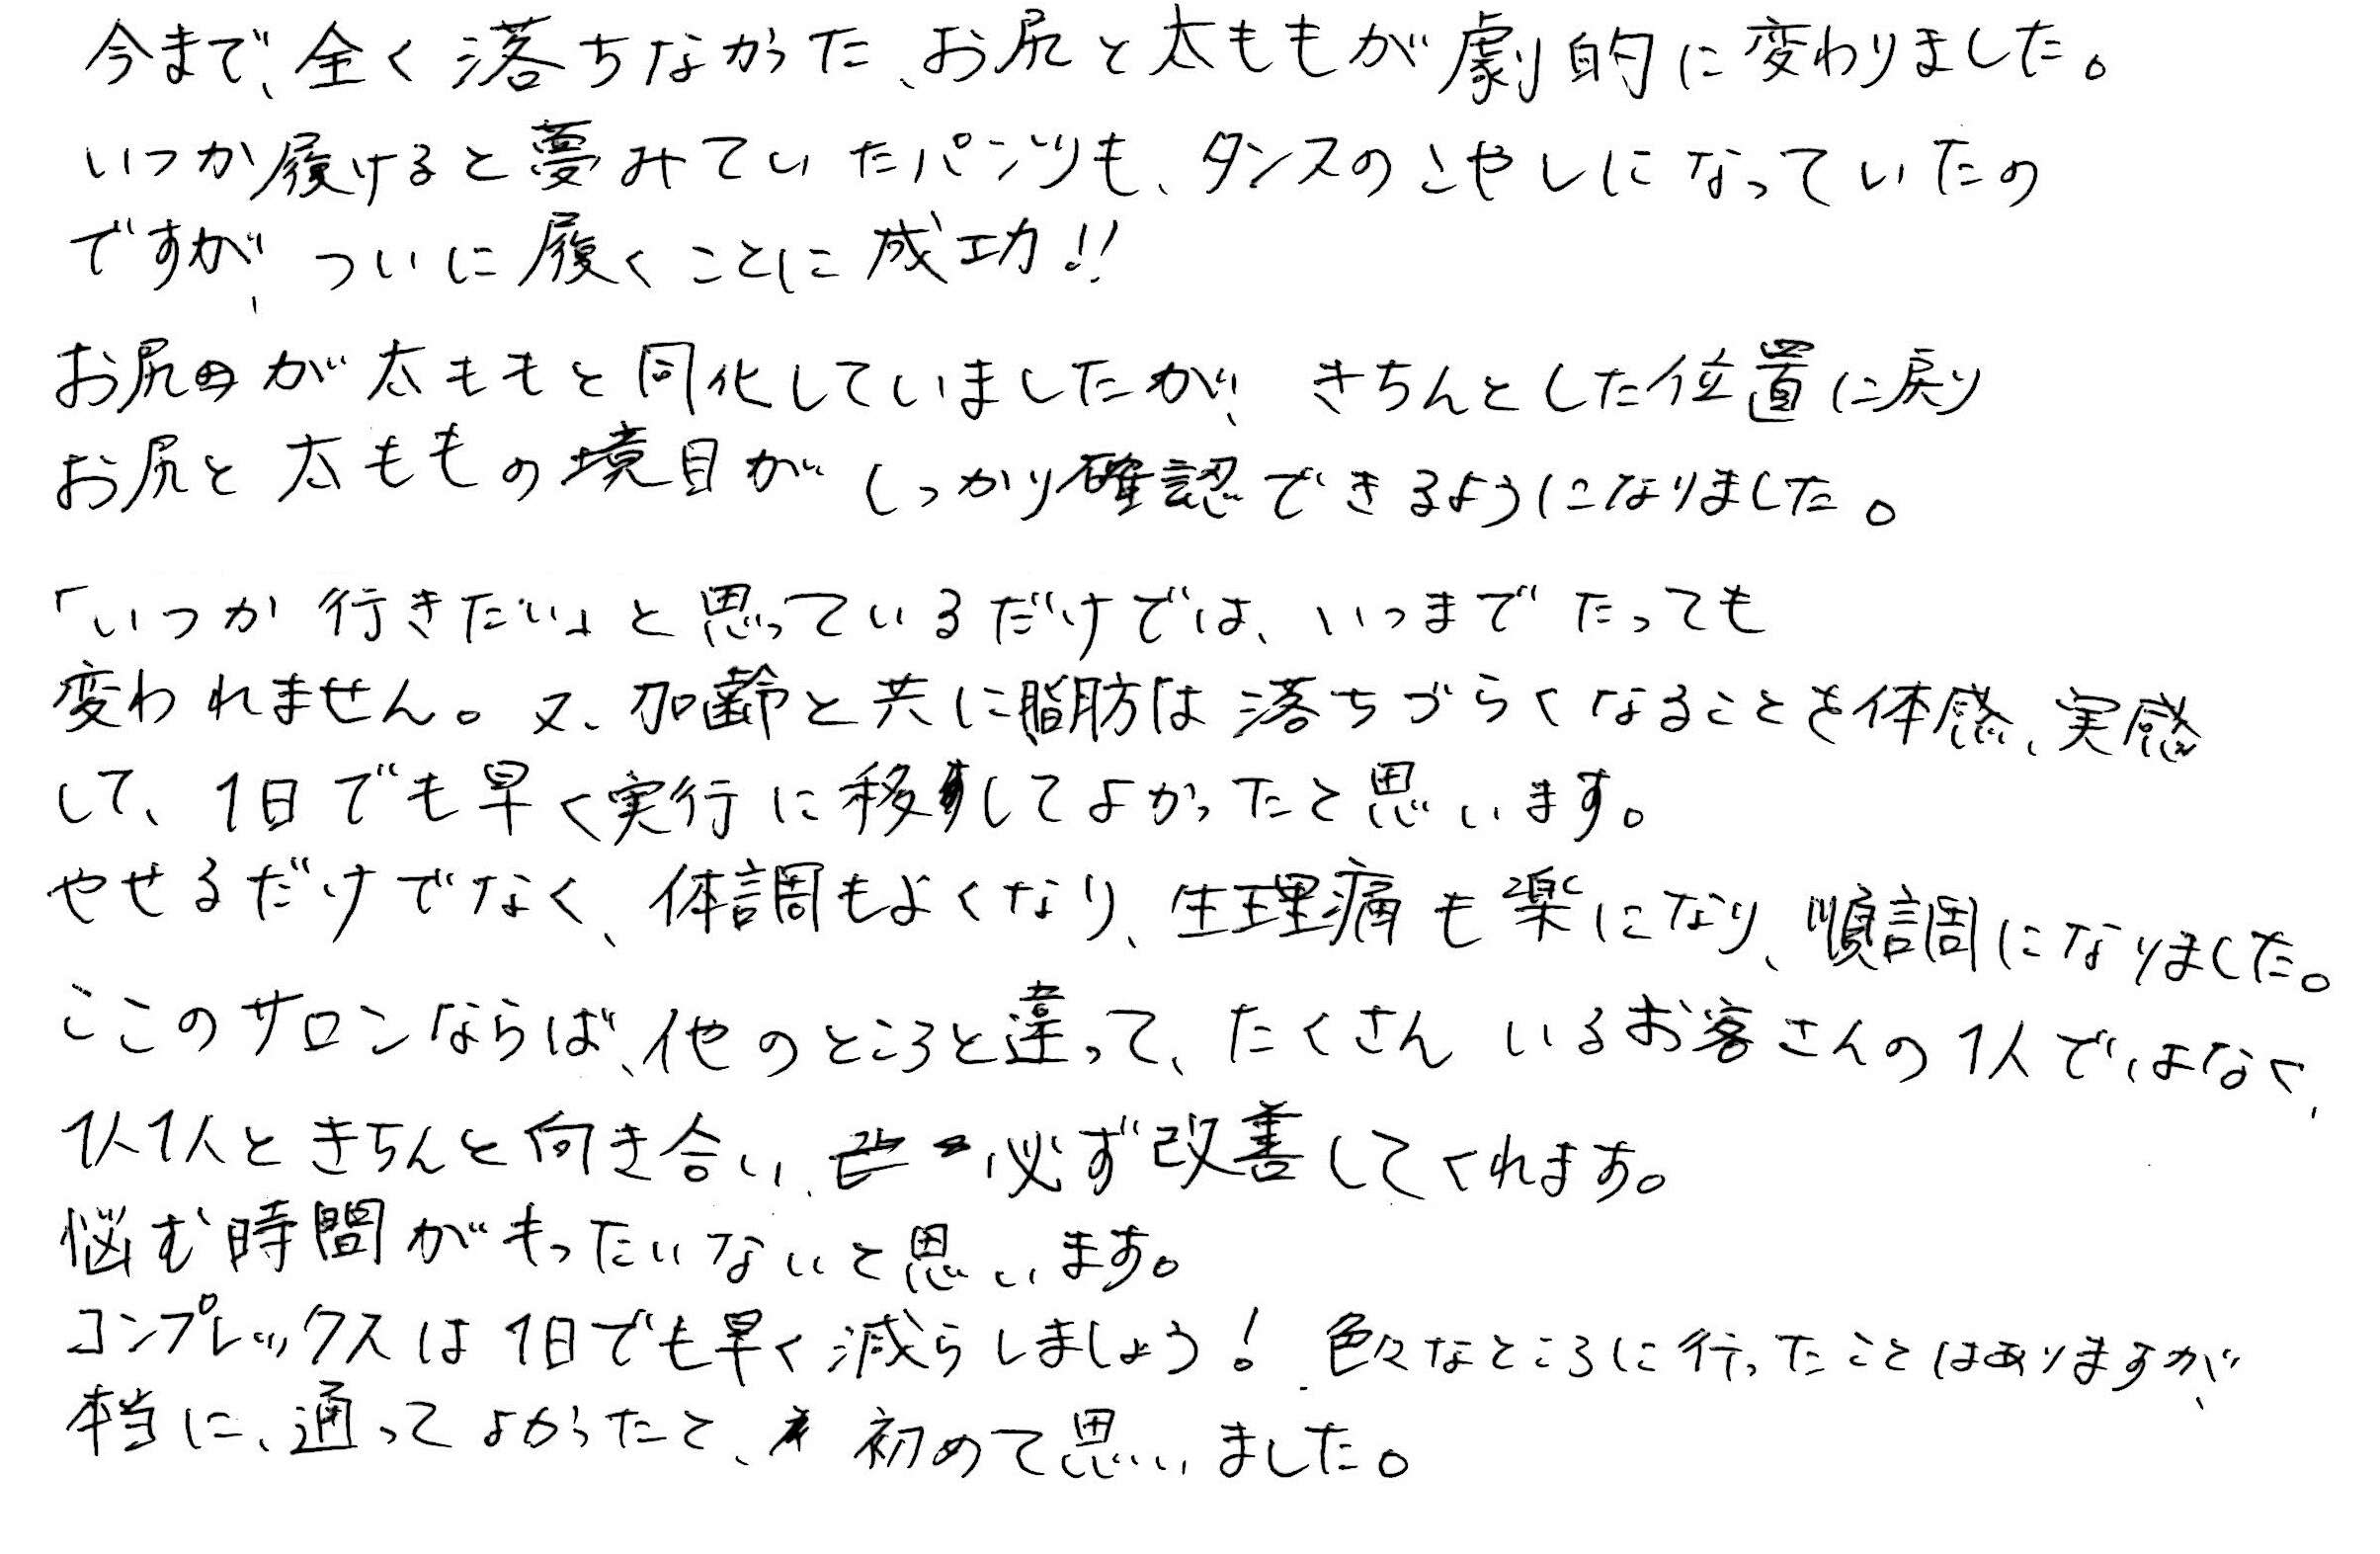 今まで、全く落ちなかった、お尻と太ももが劇的に変わりました。
いつか履けると夢みていたパンツも、タンスのこやしになっていたの
ですが、ついに履くことに成功!!
お尻が太ももと同化していましたが、きちんとした位置に戻り
お尻と太ももの境目がしっかり確認できるようになりました。
「いつか行きたい」と思っているだけでは、いつまでたっても
変われません。又、加齢と共に脂肪は落ちづらくなることを体感、実感
して、1日でも早く実行に移してよかったと思います。
やせるだけでなく、体調もよくなり、生理痛も楽になり、順調になりました。
ここのサロンならば、他のところと違って、たくさんいるお客さんの1人ではなく、
1人1人ときちんと向き合い、必ず改善してくれます。
悩む時間がもったいないと思います。
コンプレックスは1日でも早く減らしましょう!色々なところに行ったことはありますが、
本当に、通ってよかったと、初めて思いました。